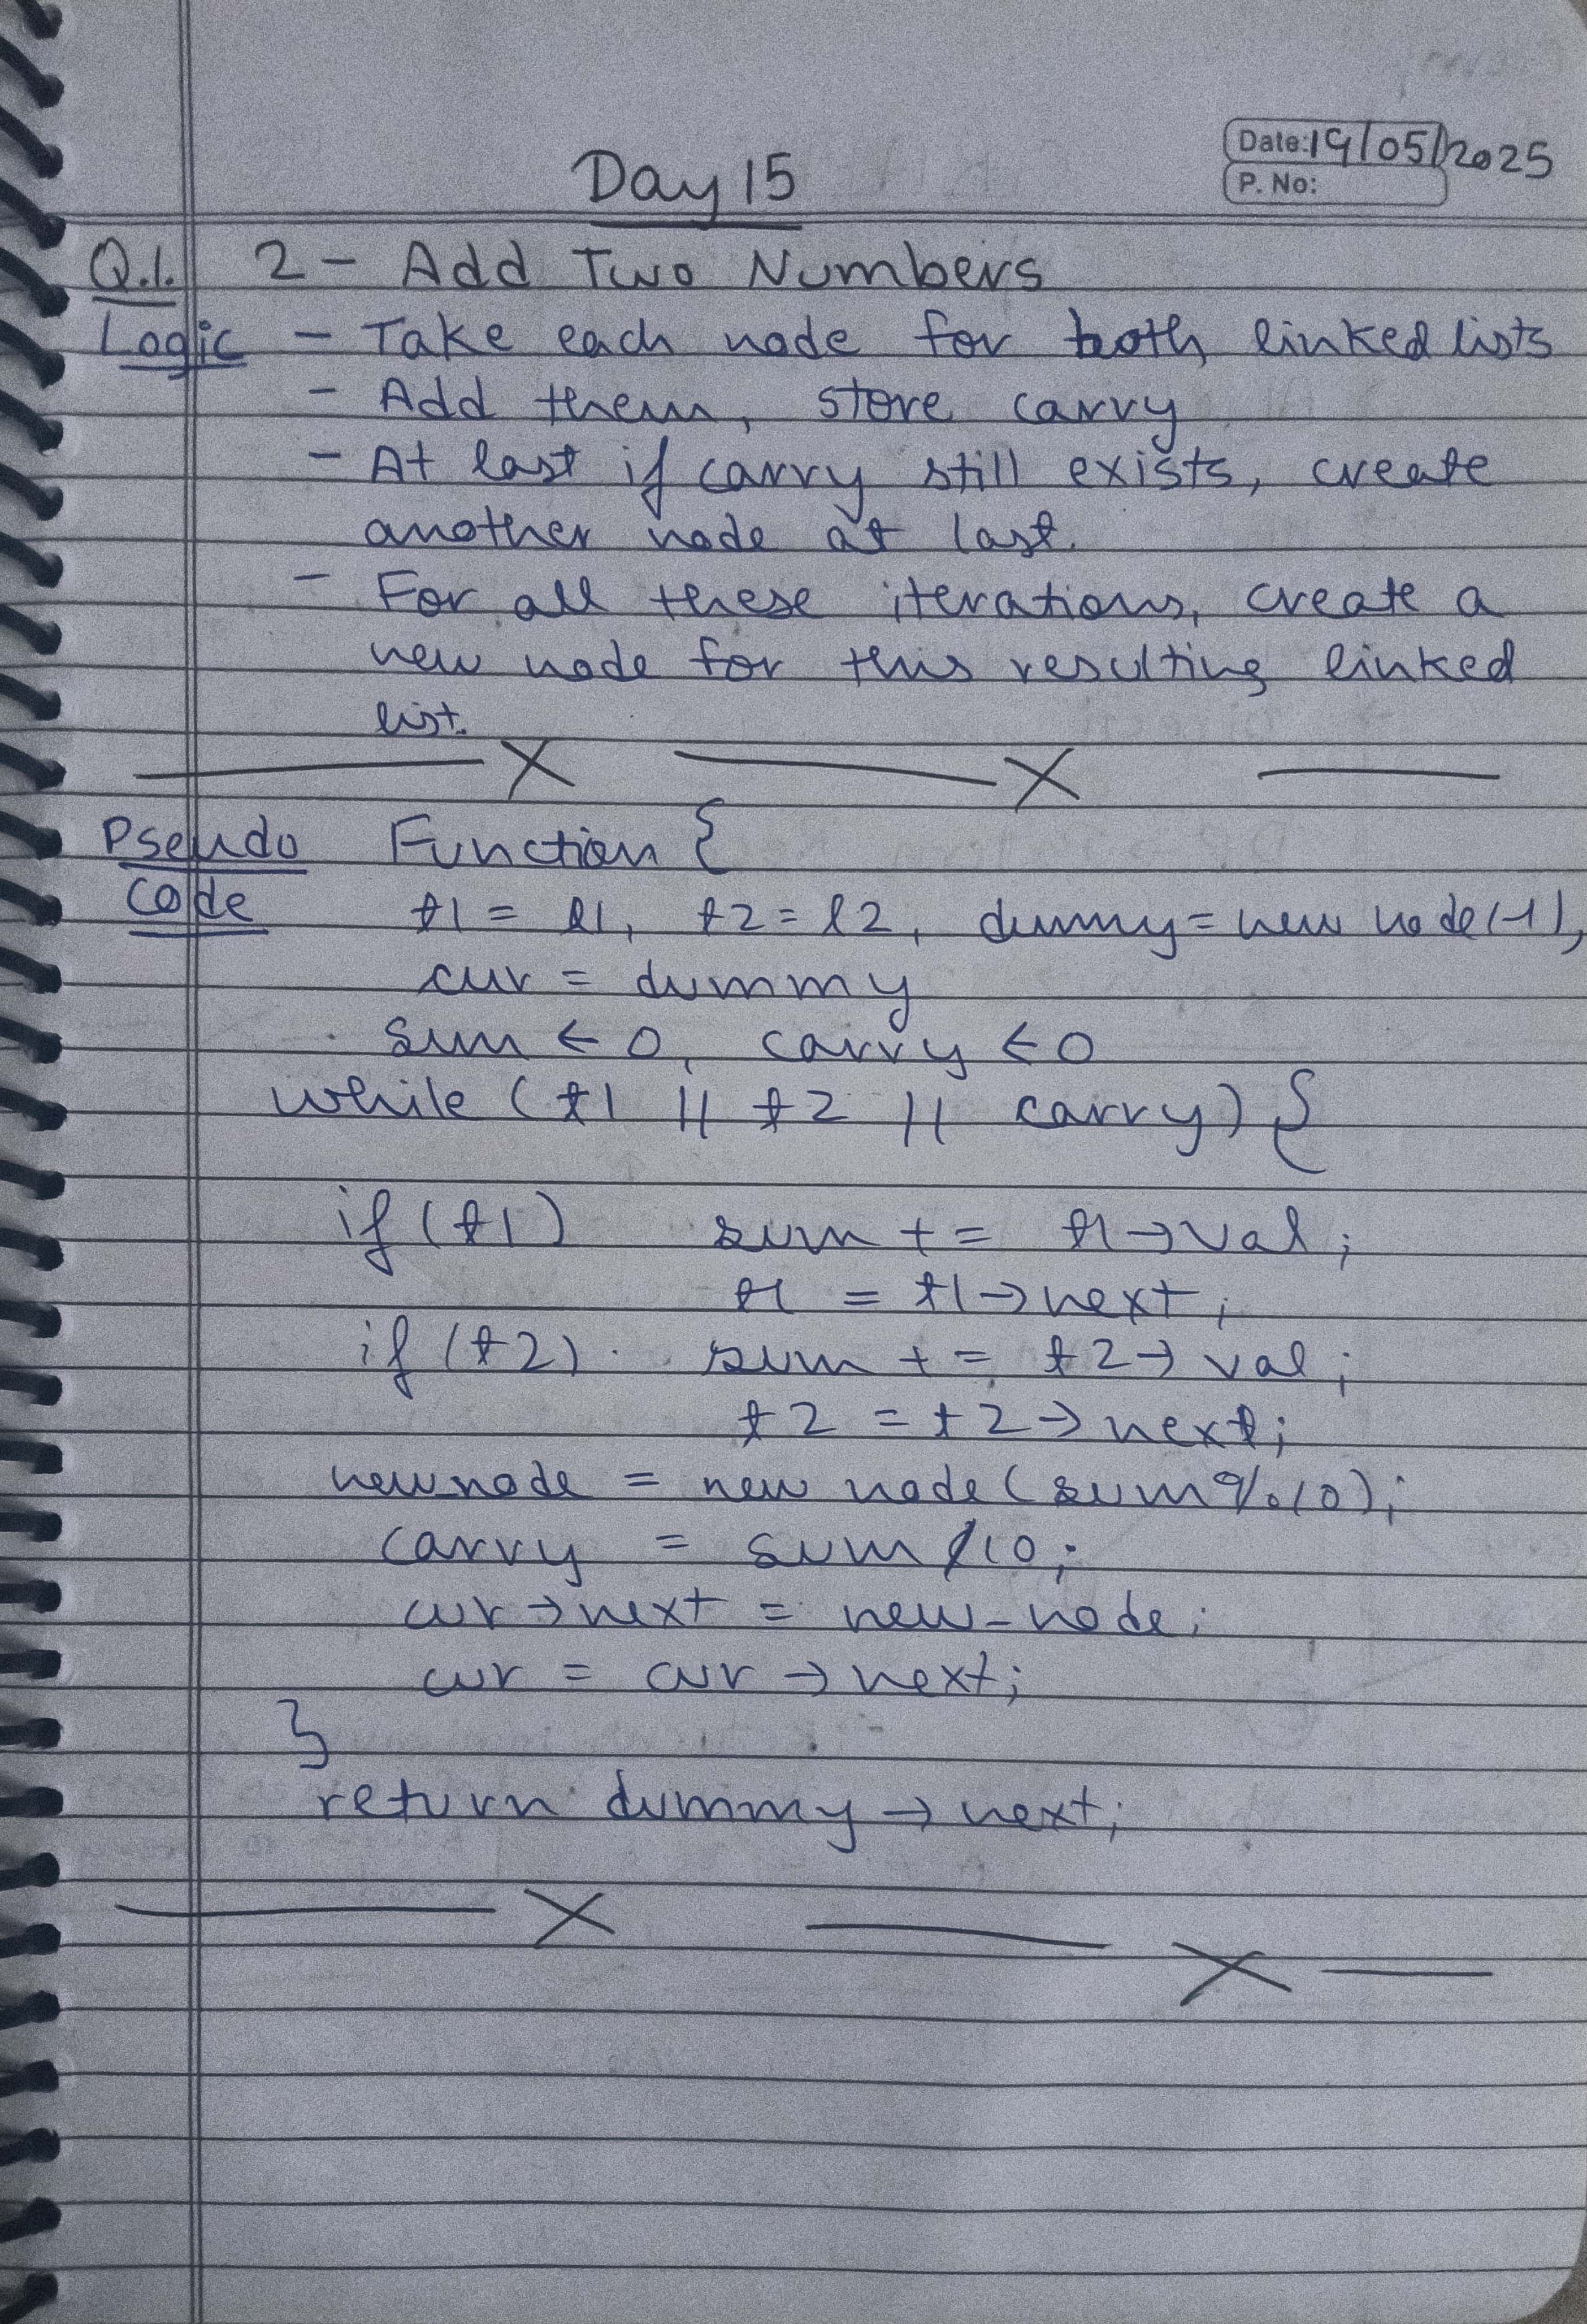 Date: 19/05/2025
P. No:
Day 15
Q.1. 2 - Add Two Numbers
Logic - Take each node for both linked lists
- Add them, store carry
- At last if carry still exists, create
another node at last.
- For all these iterations, create a
new node for this resulting linked
list.
X X
Pseudo Function {
code t1 = l1, t2 = l2, dummy = new node(-1),
cur = dummy
sum ← 0, carry ← 0
while (t1 || t2 || carry) {
if (t1) sum += t1→val;
t1 = t1→next;
if (t2) sum += t2→val;
t2 = t2→next;
newnode = new node(sum%10);
carry = sum/10;
cur→next = new_node;
cur = cur→next;
}
return dummy→next;
X X